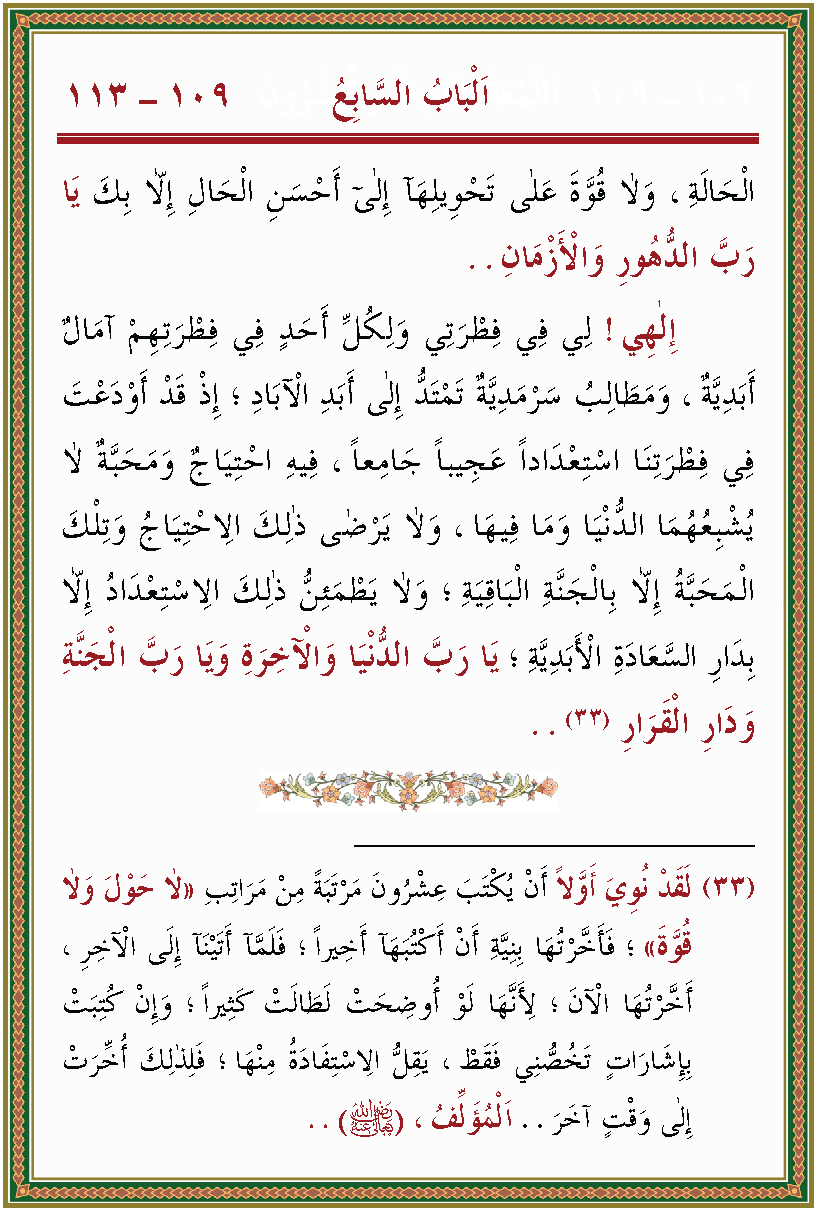 اَلْبَابُ السَّابِعُ ١٠٩ – ١١٣
الْحَالَةِ ، وَلَا قُوَّةَ عَلٰى تَحْوِيلِهَآ إِلٰىٓ أَحْسَنِ الْحَالِ إِلَّا بِكَ يَا
رَبَّ الدُّهُورِ وَالْأَزْمَانِ . .
إِلٰهِي ! لِي فِي فِطْرَتِي وَلِكُلِّ أَحَدٍ فِي فِطْرَتِهِمْ آمَالٌ
أَبَدِيَّةٌ ، وَمَطَالِبُ سَرْمَدِيَّةٌ تَمْتَدُّ إِلٰى أَبَدِ الْآبَادِ ؛ إِذْ قَدْ أَوْدَعْتَ
فِي فِطْرَتِنَا اسْتِعْدَاداً عَجِيباً جَامِعاً ، فِيهِ احْتِيَاجٌ وَمَحَبَّةٌ لَا
يُشْبِعُهُمَا الدُّنْيَا وَمَا فِيهَا ، وَلَا يَرْضٰى ذٰلِكَ الِاحْتِيَاجُ وَتِلْكَ
الْمَحَبَّةُ إِلَّا بِالْجَنَّةِ الْبَاقِيَةِ ؛ وَلَا يَطْمَئِنُّ ذٰلِكَ الِاسْتِعْدَادُ إِلَّا
بِدَارِ السَّعَادَةِ الْأَبَدِيَّةِ ؛ يَا رَبَّ الدُّنْيَا وَالْآخِرَةِ وَيَا رَبَّ الْجَنَّةِ
وَدَارِ الْقَرَارِ (٣٣) . .
(٣٣) لَقَدْ نُوِيَ أَوَّلاً أَنْ يُكْتَبَ عِشْرُونَ مَرْتَبَةً مِنْ مَرَاتِبِ «لَا حَوْلَ وَلَا
قُوَّةَ» ؛ فَأَخَّرْتُهَا بِنِيَّةِ أَنْ أَكْتُبَهَآ أَخِيراً ؛ فَلَمَّآ أَتَيْنَآ إِلَى الْآخِرِ ،
أَخَّرْتُهَا الْآنَ ؛ لِأَنَّهَا لَوْ أُوضِحَتْ لَطَالَتْ كَثِيراً ؛ وَإِنْ كُتِبَتْ
بِإِشَارَاتٍ تَخُصُّنِي فَقَطْ ، يَقِلُّ الِاسْتِفَادَةُ مِنْهَا ؛ فَلِذٰلِكَ أُخِّرَتْ
إِلٰى وَقْتٍ آخَرَ . . اَلْمُؤَلِّفُ ، (رَضِيَ اللّٰهُ تَعَالٰى عَنْهُ) . .